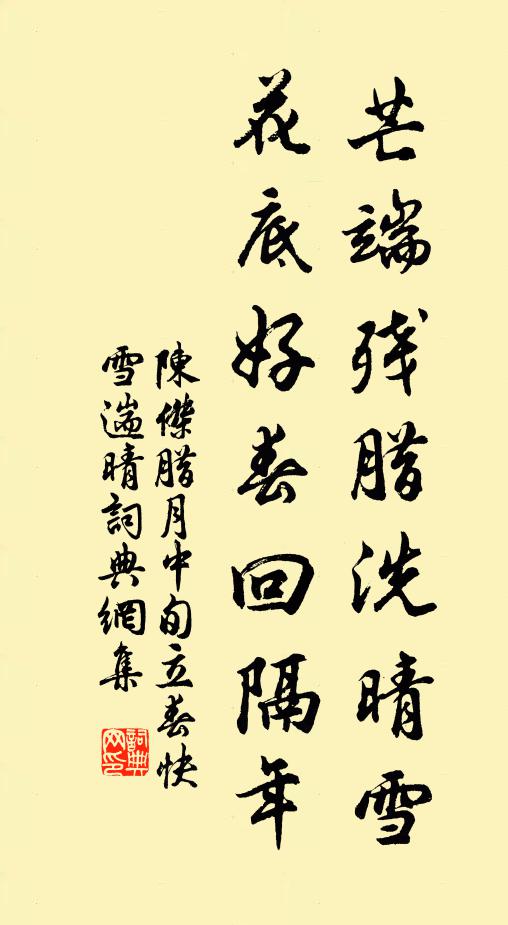 芒端残腊洗晴雪
花底好春回隔年
陳傑腊月中旬立春快
雪遄晴詞典網集
詞典网印